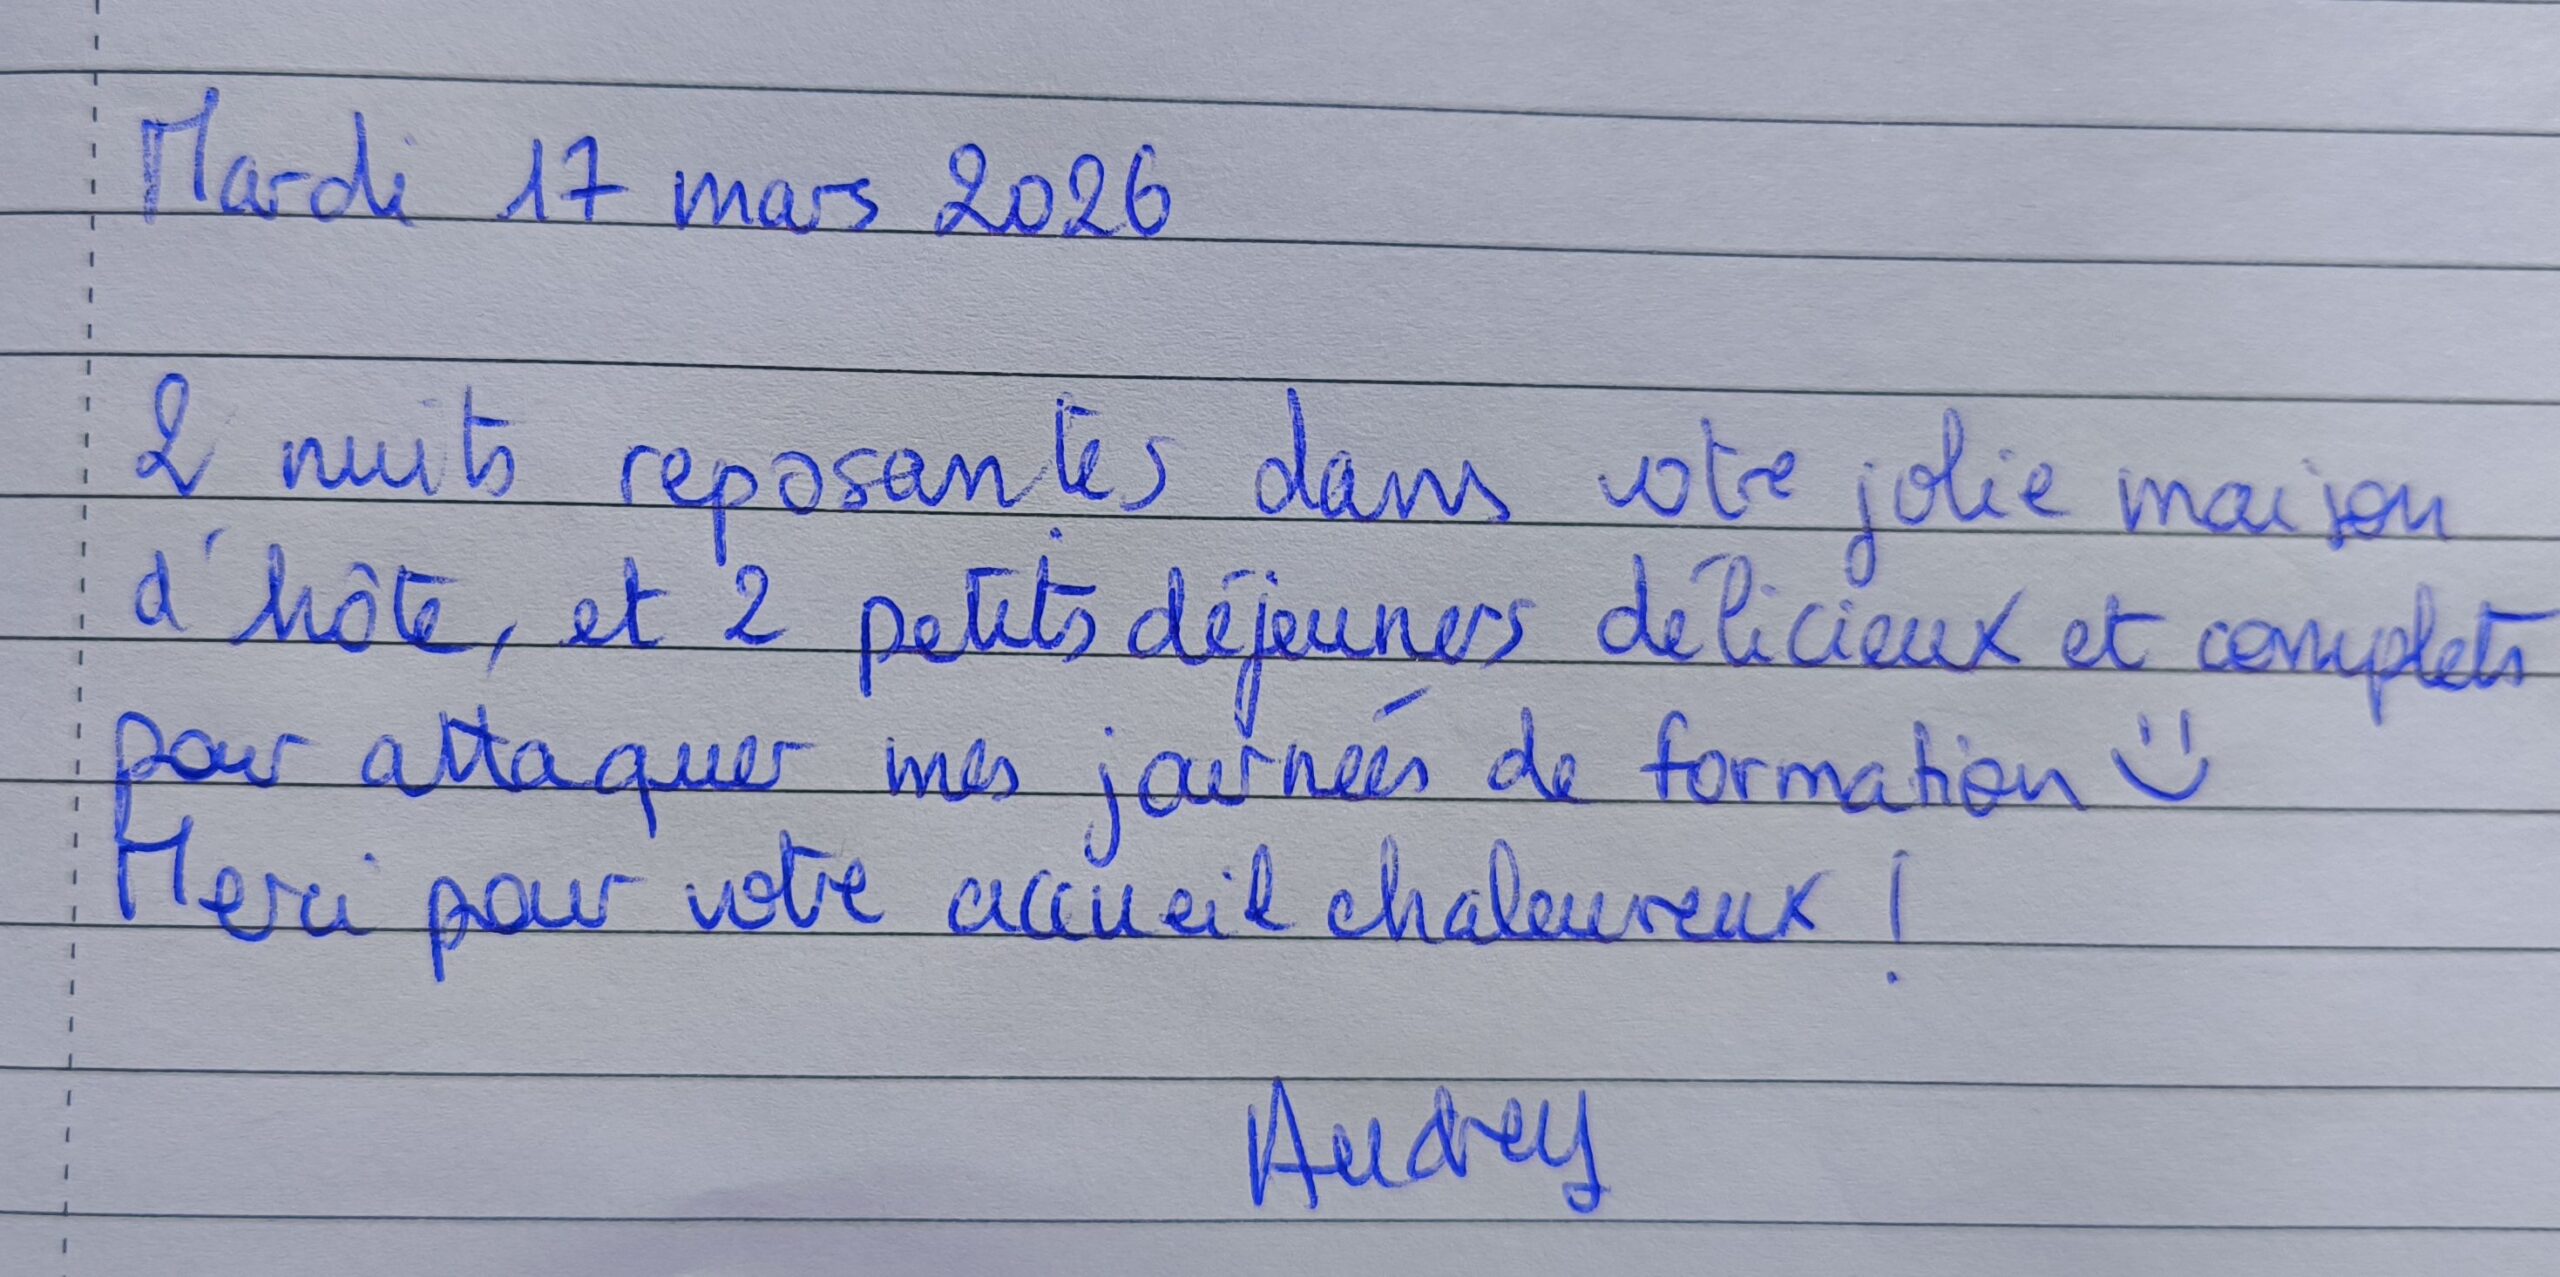 Mardi 17 mars 2026
2 nuits reposantes dans votre jolie maison
d'hôte, et 2 petits déjeuners délicieux et complets
pour attaquer mes journées de formation :)
Merci pour votre accueil chaleureux !
Audrey